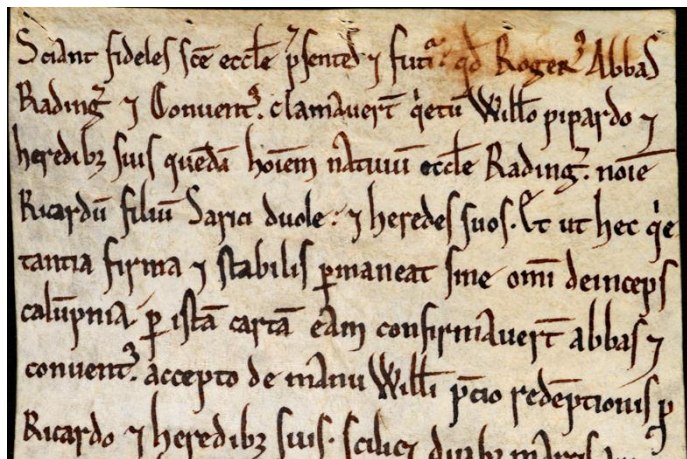 Sciant fideles sc̄e eccl̄e p̄sentes ⁊ futͥ. qđ Rogerꝰ Abbas
Rading̃ ⁊ Conventꝰ. clamaverт̄ qͥetū Willo pipardo ⁊
heredibꝫ suis quedā hoīem nativū eccl̄e Rading̃. noīe
Ricardū filiū Sarici duole. ⁊ heredes suos. Et ut hec qͥe
tantia firma ⁊ stabilis ꝑmaneat sine omī deinceps
calūpnia. ꝑ istā cartā eam confirmaverт̄ abbas ⁊
conventꝰ. accepto de manu Willi p̄cio redēptionis ꝑ
Ricardo ⁊ heredibꝫ suis. scilicꝫ duabꝫ